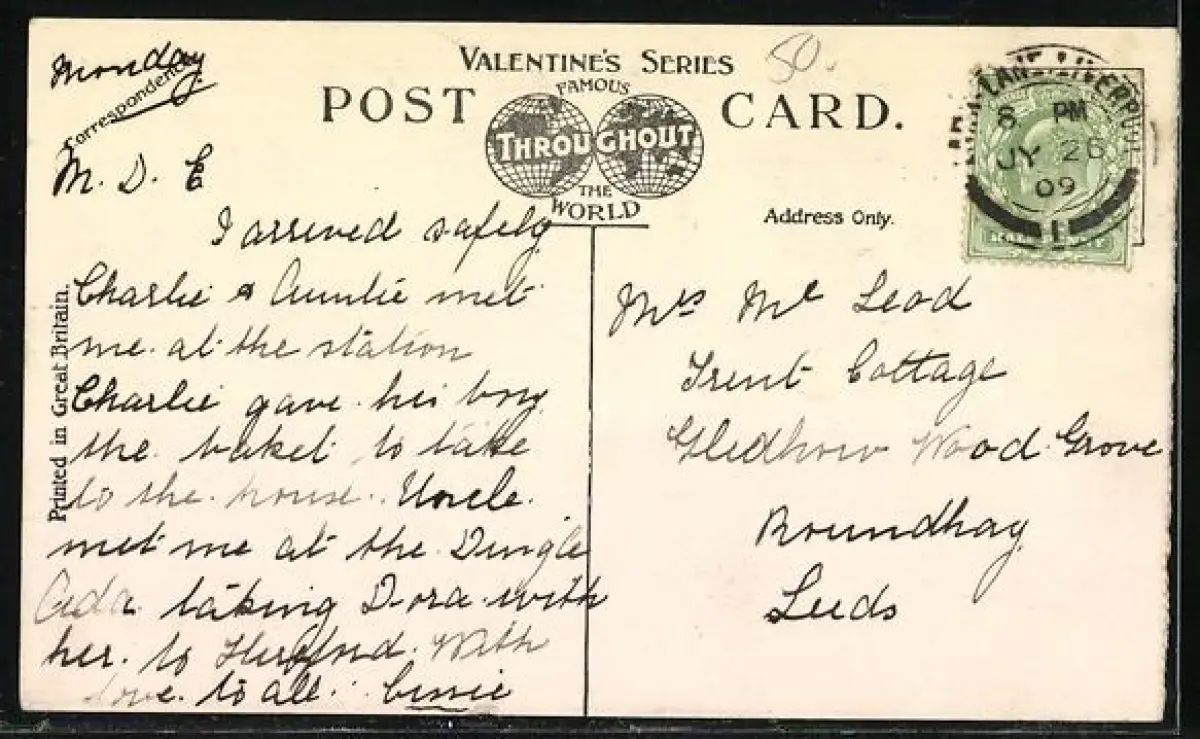 Monday
Correspondence
VALENTINE'S SERIES
50.
FAMOUS
POST CARD.
THROUGHOUT
THE
WORLD
Address Only.
LANE. LIVERPOOL
8 PM
JY 26
09
1
HALFPENNY
Printed in Great Britain.
M. D. E
I arrived safely
Charlie & Auntie met
me at the station
Charlie gave his boy
the basket to take
to the house. Uncle
met me at the Dingle
Ada taking Dora with
her. to Hereford. With
love. to all.
Mrs Mc Leod
Trent Cottage
Gledhow Wood Grove
Roundhay
Leeds